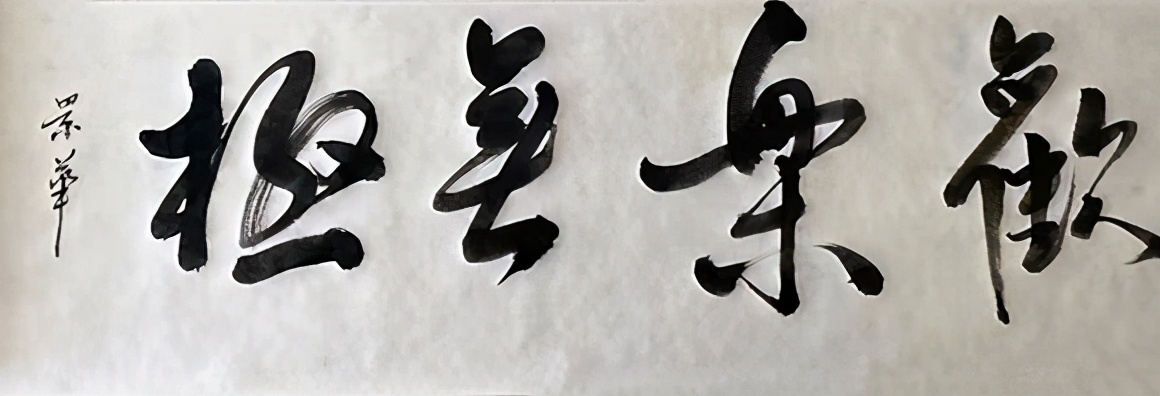 歡樂無極
景華